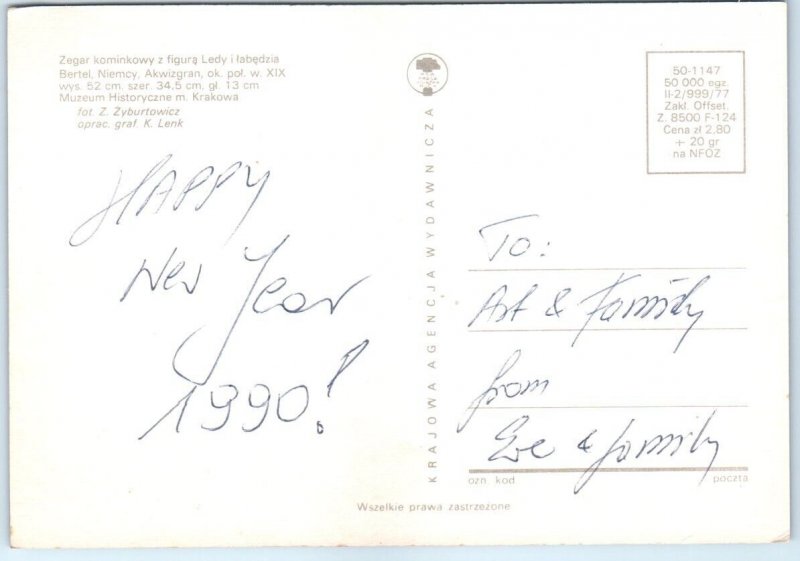 Zegar kominkowy z figurą Ledy i łabędzia
Bertel, Niemcy, Akwizgran, ok. poł. w. XIX
wys. 52 cm, szer. 34,5 cm, gł. 13 cm
Muzeum Historyczne m. Krakowa
fot. Z. Żyburtowicz
oprac. graf. K. Lenk
HAPPY
New Year
1990!
KRAJOWA AGENCJA WYDAWNICZA
50-1147
50 000 egz.
II-2/999/77
Zakł. Offset.
Z. 8500 F-124
Cena zł 2.80
+ 20 gr
na NFOZ
To:
Art & Family
from
Eve & family
ozn. kod
poczta
Wszelkie prawa zastrzeżone